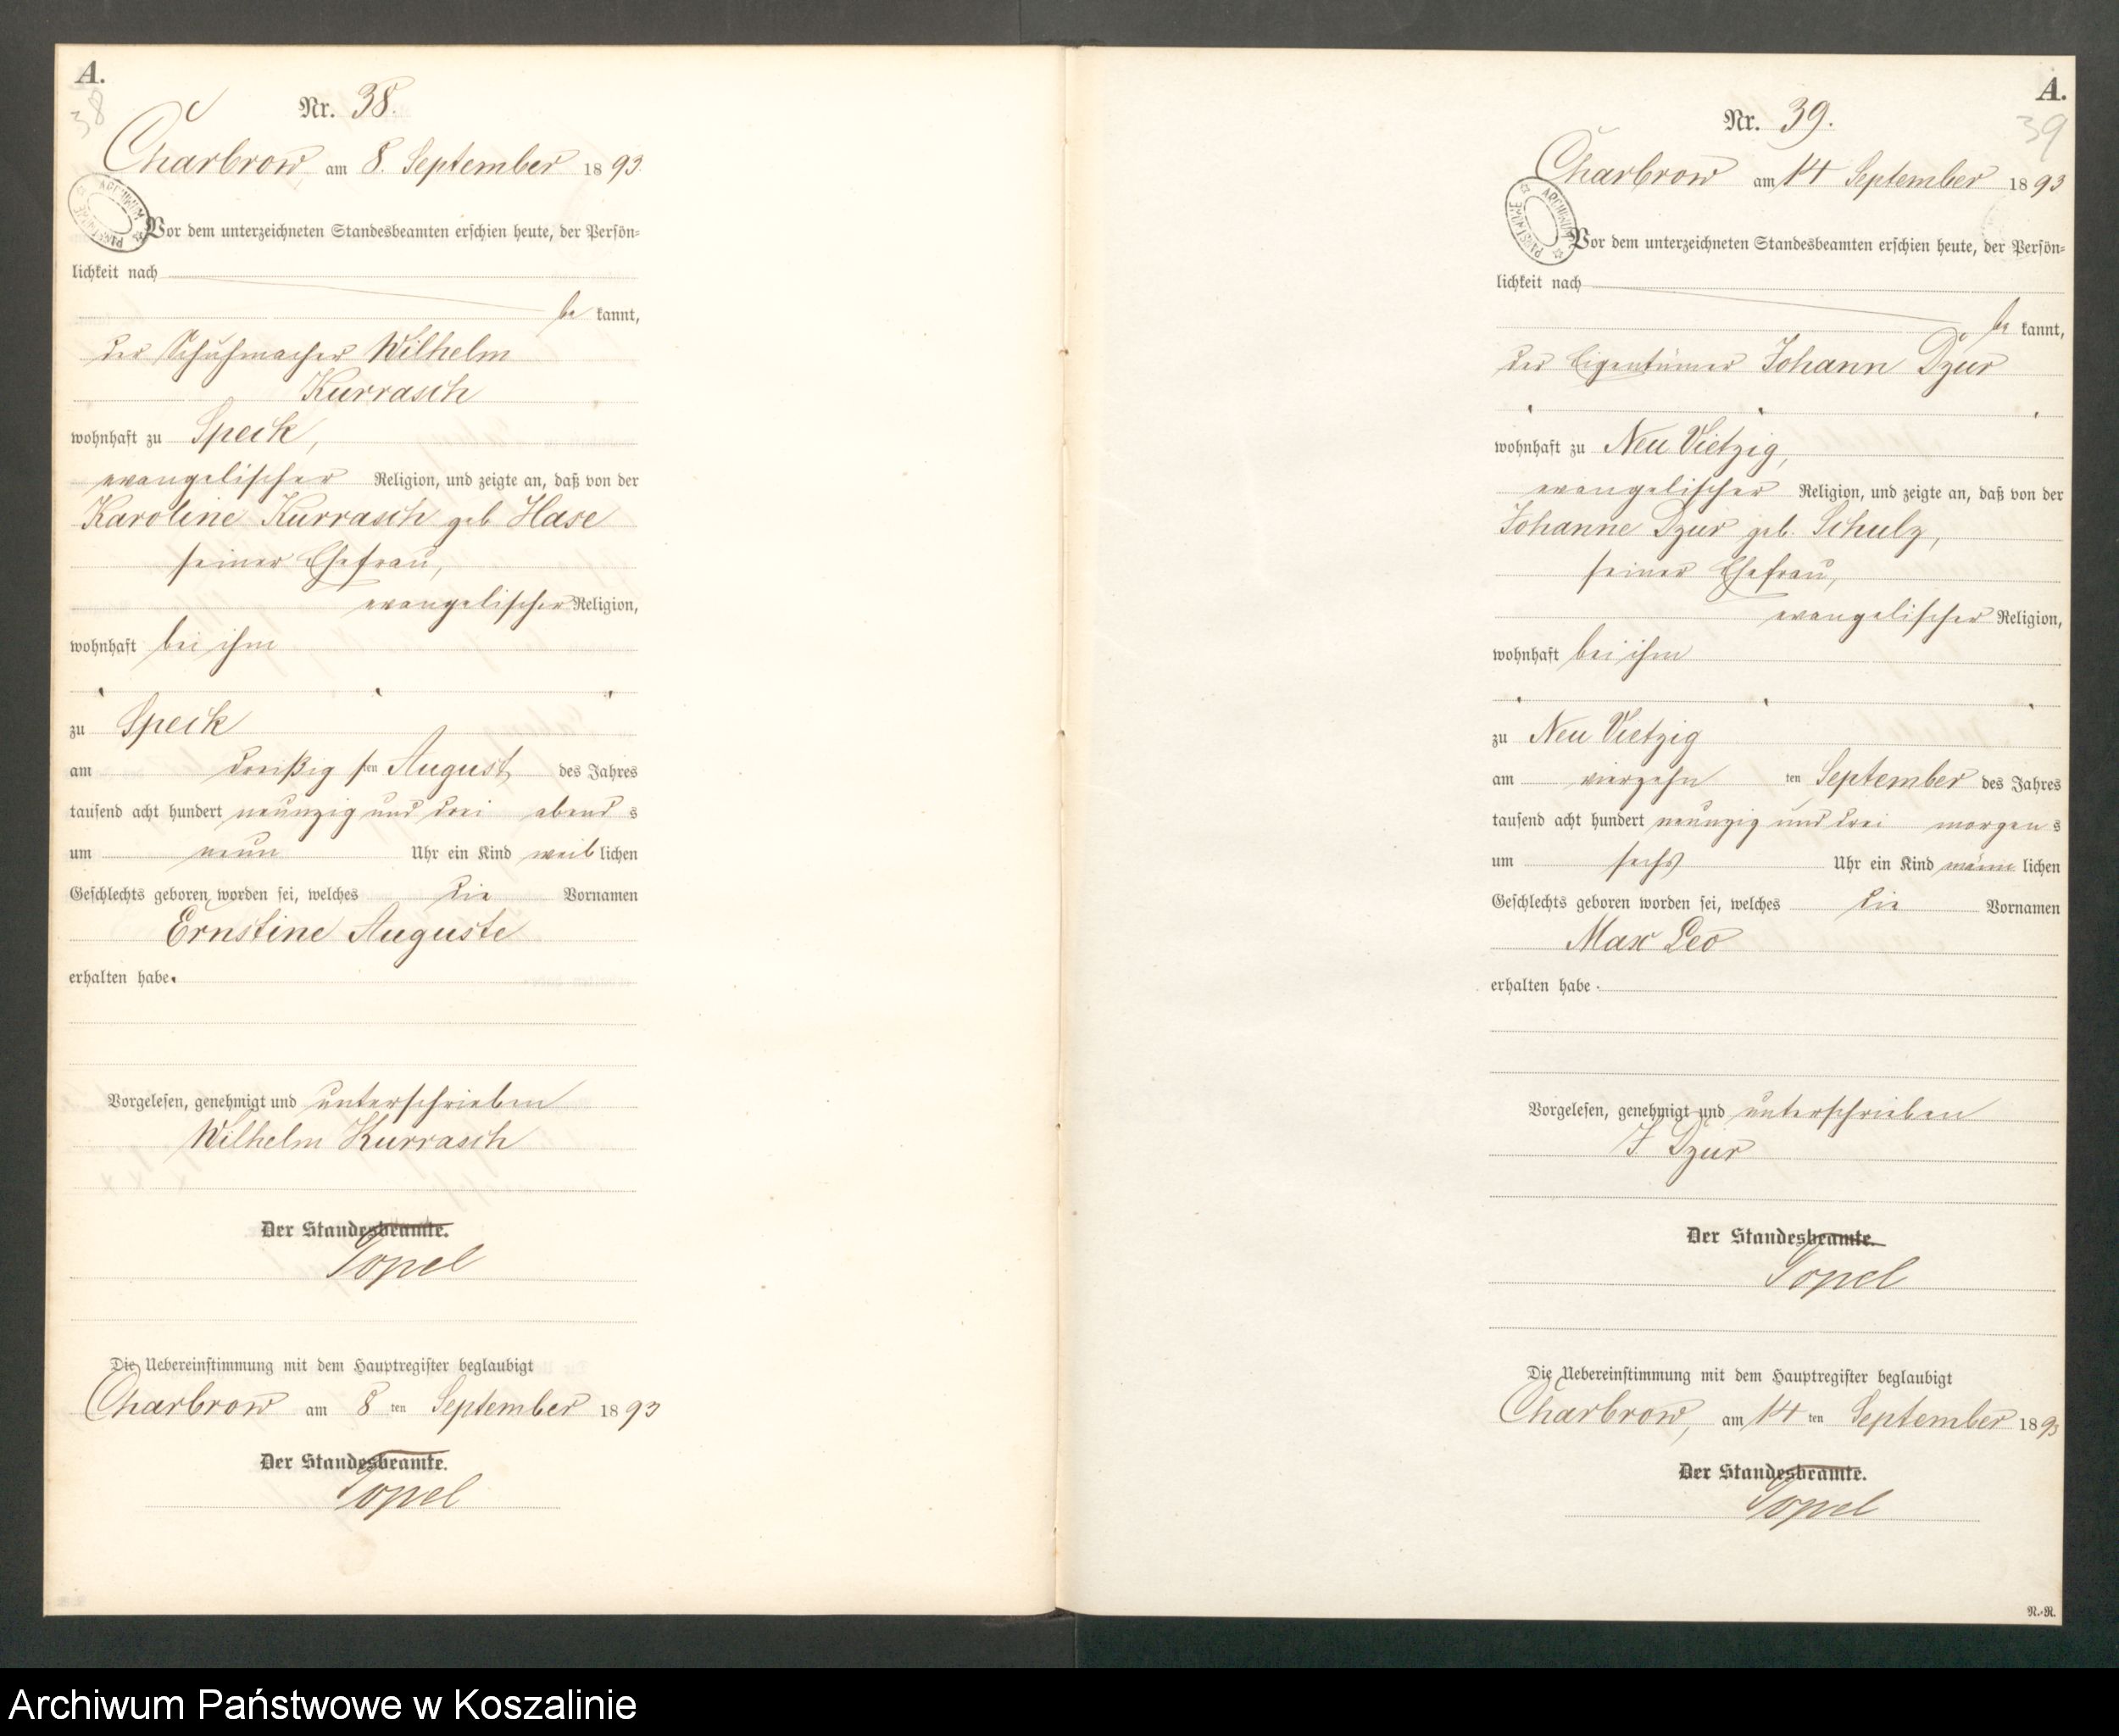 A.
38
Nr. 38.
Charbrow, am 8. September 1893.
ARCHIWUM PAŃSTWOWE
Vor dem unterzeichneten Standesbeamten erschien heute, der Persön=
lichkeit nach
be kannt,
der Schuhmacher Wilhelm
Kurrasch
wohnhaft zu Speck,
evangelischer Religion, und zeigte an, daß von der
Karoline Kurrasch geb. Hase
seiner Ehefrau,
evangelischer Religion,
wohnhaft bei ihm
zu Speck
am dreißigsten August des Jahres
tausend acht hundert neunzig und drei abends
um neun Uhr ein Kind weiblichen
Geschlechts geboren worden sei, welches die Vornamen
Ernstine Auguste
erhalten habe.
Vorgelesen, genehmigt und unterschrieben
Wilhelm Kurrasch
Der Standesbeamte.
Topel
Die Uebereinstimmung mit dem Hauptregister beglaubigt
Charbrow am 8ten September 1893
Der Standesbeamte.
Topel
A.
39
Nr. 39.
Charbrow am 14 September 1893
ARCHIWUM PAŃSTWOWE
Vor dem unterzeichneten Standesbeamten erschien heute, der Persön=
lichkeit nach
be kannt,
der Eigentümer Johann Dzur
wohnhaft zu Neu Vietzig,
evangelischer Religion, und zeigte an, daß von der
Johanne Dzur geb. Schulz,
seiner Ehefrau,
evangelischer Religion,
wohnhaft bei ihm
zu Neu Vietzig
am vierzehn ten September des Jahres
tausend acht hundert neunzig und drei morgens
um sechs Uhr ein Kind männlichen
Geschlechts geboren worden sei, welches die Vornamen
Max Leo
erhalten habe.
Vorgelesen, genehmigt und unterschrieben
J Dzur
Der Standesbeamte.
Topel
Die Uebereinstimmung mit dem Hauptregister beglaubigt
Charbrow, am 14ten September 1893
Der Standesbeamte.
Topel
N.-N.
Archiwum Państwowe w Koszalinie